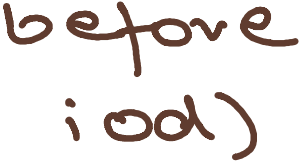 before
iod)